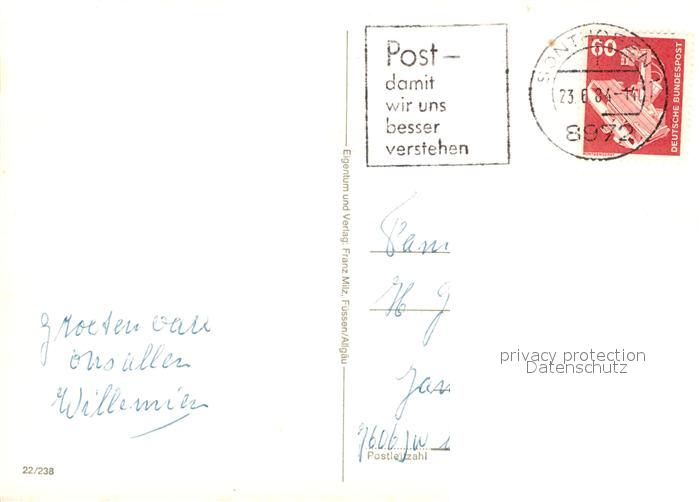 Post–
damit
wir uns
besser
verstehen
SONTHOFEN
23.6.84-14
8972
60
DEUTSCHE BUNDESPOST
Eigentum und Verlag: Franz Milz, Füssen/Allgäu
Fam
H J
Jan
privacy protection
Datenschutz
Postleitzahl
groeten van
ons allen
Willemien
22/238